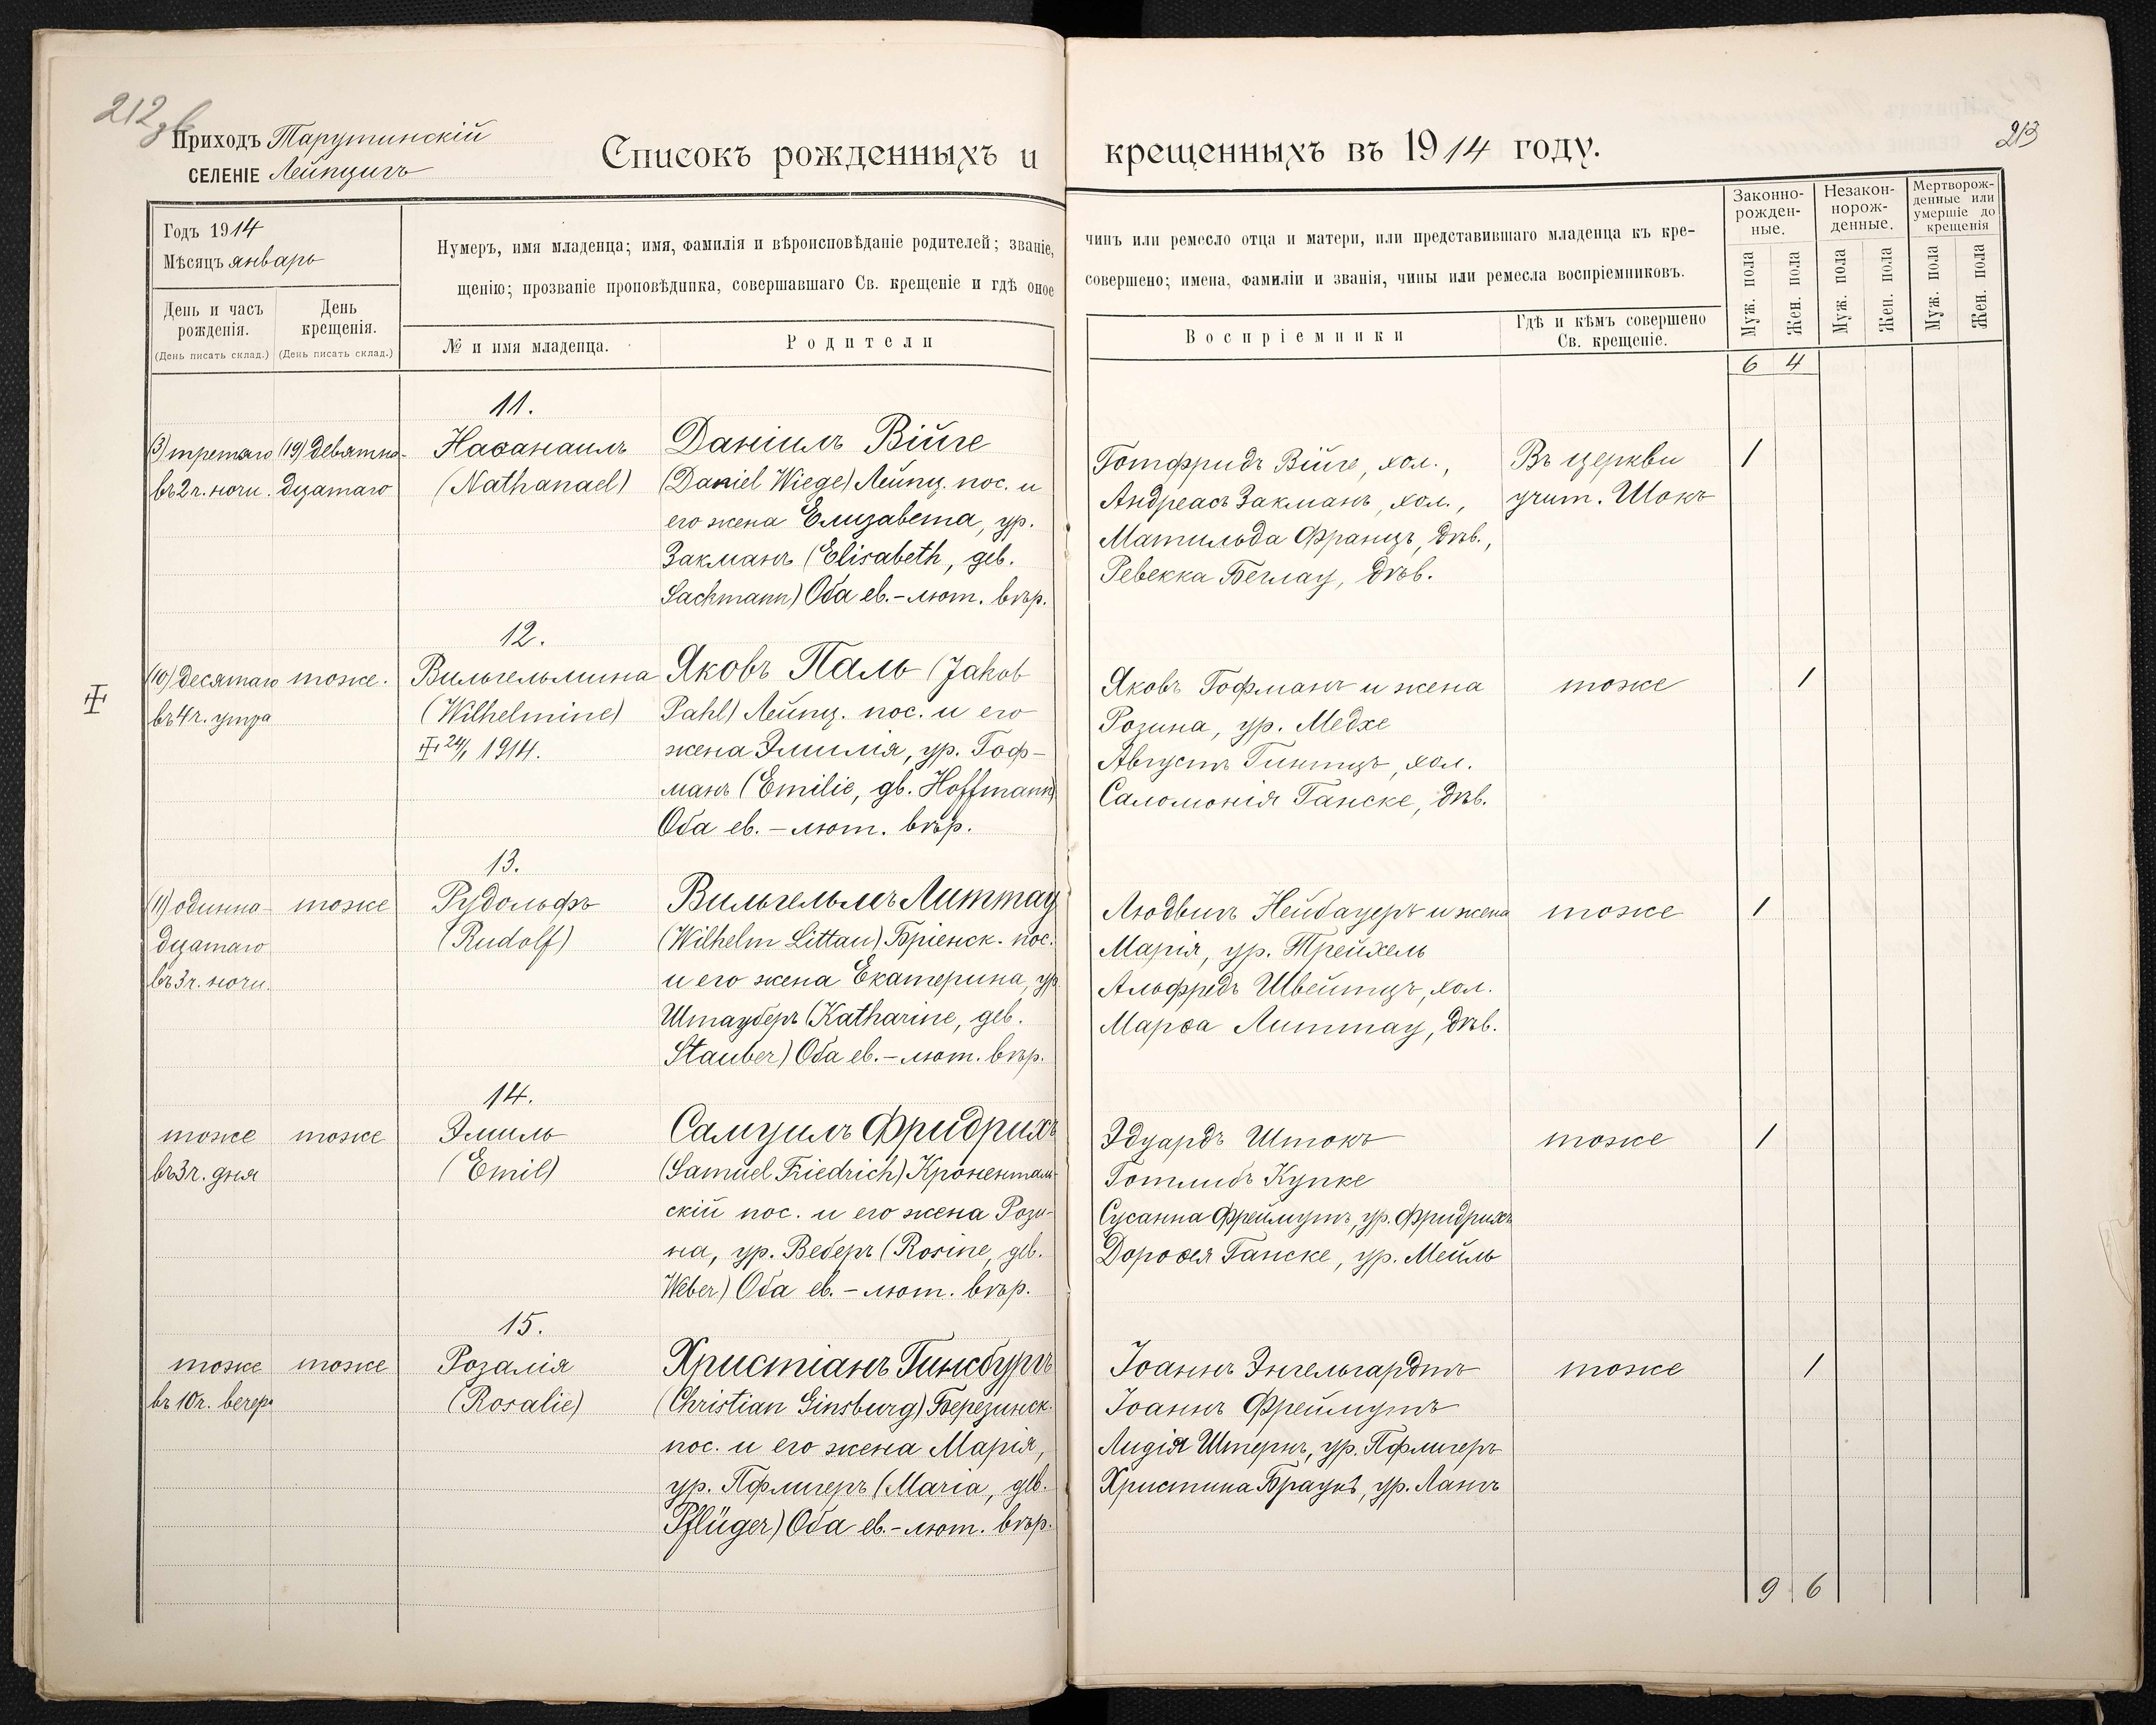 212 зв
Приходъ Тарутинскій
СЕЛЕНІЕ Лейпцигъ
Списокъ рожденныхъ и крещенныхъ въ 1914 году.
213
Годъ 1914
Мѣсяцъ январь
День и часъ рожденія.
(День писать склад.)
День крещенія.
(День писать склад.)
Нумеръ, имя младенца; имя, фамилія и вѣроисповѣданіе родителей; званіе, чинъ или ремесло отца и матери, или представившаго младенца къ кре-
щенію; прозваніе проповѣдника, совершавшаго Св. крещеніе и гдѣ оное совершено; имена, фамиліи и званія, чины или ремесла воспріемниковъ.
№ и имя младенца.
Родители
Воспріемники
Гдѣ и кѣмъ совершено
Св. крещеніе.
Законно-
рожден-
ные.
Незакон-
норож-
денные.
Мертворож-
денные или
умершіе до
крещенія
Муж. пола
Жен. пола
Муж. пола
Жен. пола
Муж. пола
Жен. пола
6 4
11.
(3) третяго
въ 2 ч. ночи.
(19) девятна-
дцатаго
Наѳанаилъ
(Nathanael)
Даніилъ Війге
(Daniel Wiege) Лейпц. пос. и
его жена Елизавета, ур.
Закманъ (Elisabeth, geb.
Sackmann) Оба ев.-лют. вѣр.
Готфридъ Війге, хол.,
Андреасъ Закманъ, хол.,
Матильда Францъ, дѣв.,
Ревекка Беглау, дѣв.
Въ церкви
учит. Шокъ
1
12.
(10) десятаго
въ 4 ч. утра
тоже.
Вильгельмина
(Wilhelmine)
24/1 1914.
Яковъ Паль (Jakob
Pahl) Лейпц. пос. и его
жена Эмилія, ур. Гоф-
манъ (Emilie, gb. Hoffmann)
Оба ев.-лют. вѣр.
Яковъ Гофманъ и жена
Розина, ур. Медхе
Августъ Гинтцъ, хол.
Саломонія Ганске, дѣв.
тоже
1
13.
(11) одинна-
дцатаго
въ 3 ч. ночи.
тоже
Рудольфъ
(Rudolf)
Вильгельмъ Литтау
(Wilhelm Littau) Бріенск. пос.
и его жена Екатерина, ур.
Штауберъ (Katharine, geb.
Stauber) Оба ев.-лют. вѣр.
Людвигъ Нейбауеръ и жена
Марія, ур. Трейхель
Альфредъ Швейтцъ, хол.
Марѳа Литтау, дѣв.
тоже
1
14.
тоже
въ 3 ч. дня
тоже
Эмиль
(Emil)
Самуилъ Фридрихъ
(Samuel Friedrich) Кроненталь-
скій пос. и его жена Рози-
на, ур. Веберъ (Rosine, geb.
Weber) Оба ев.-лют. вѣр.
Эдуардъ Штокъ
Готлибъ Купке
Сусанна Фреймутъ, ур. Фридрихъ
Дороѳея Ганске, ур. Мейль
тоже
1
15.
тоже
въ 10 ч. вечер.
тоже
Розалія
(Rosalie)
Христіанъ Гинсбургъ
(Christian Ginsburg) Березинск.
пос. и его жена Марія,
ур. Пфлигеръ (Maria, geb.
Pflüger) Оба ев.-лют. вѣр.
Іоаннъ Энгельгардтъ
Іоаннъ Фреймутъ
Лидія Штернъ, ур. Пфлигеръ
Христина Браунъ, ур. Лангъ
тоже
1
9 6